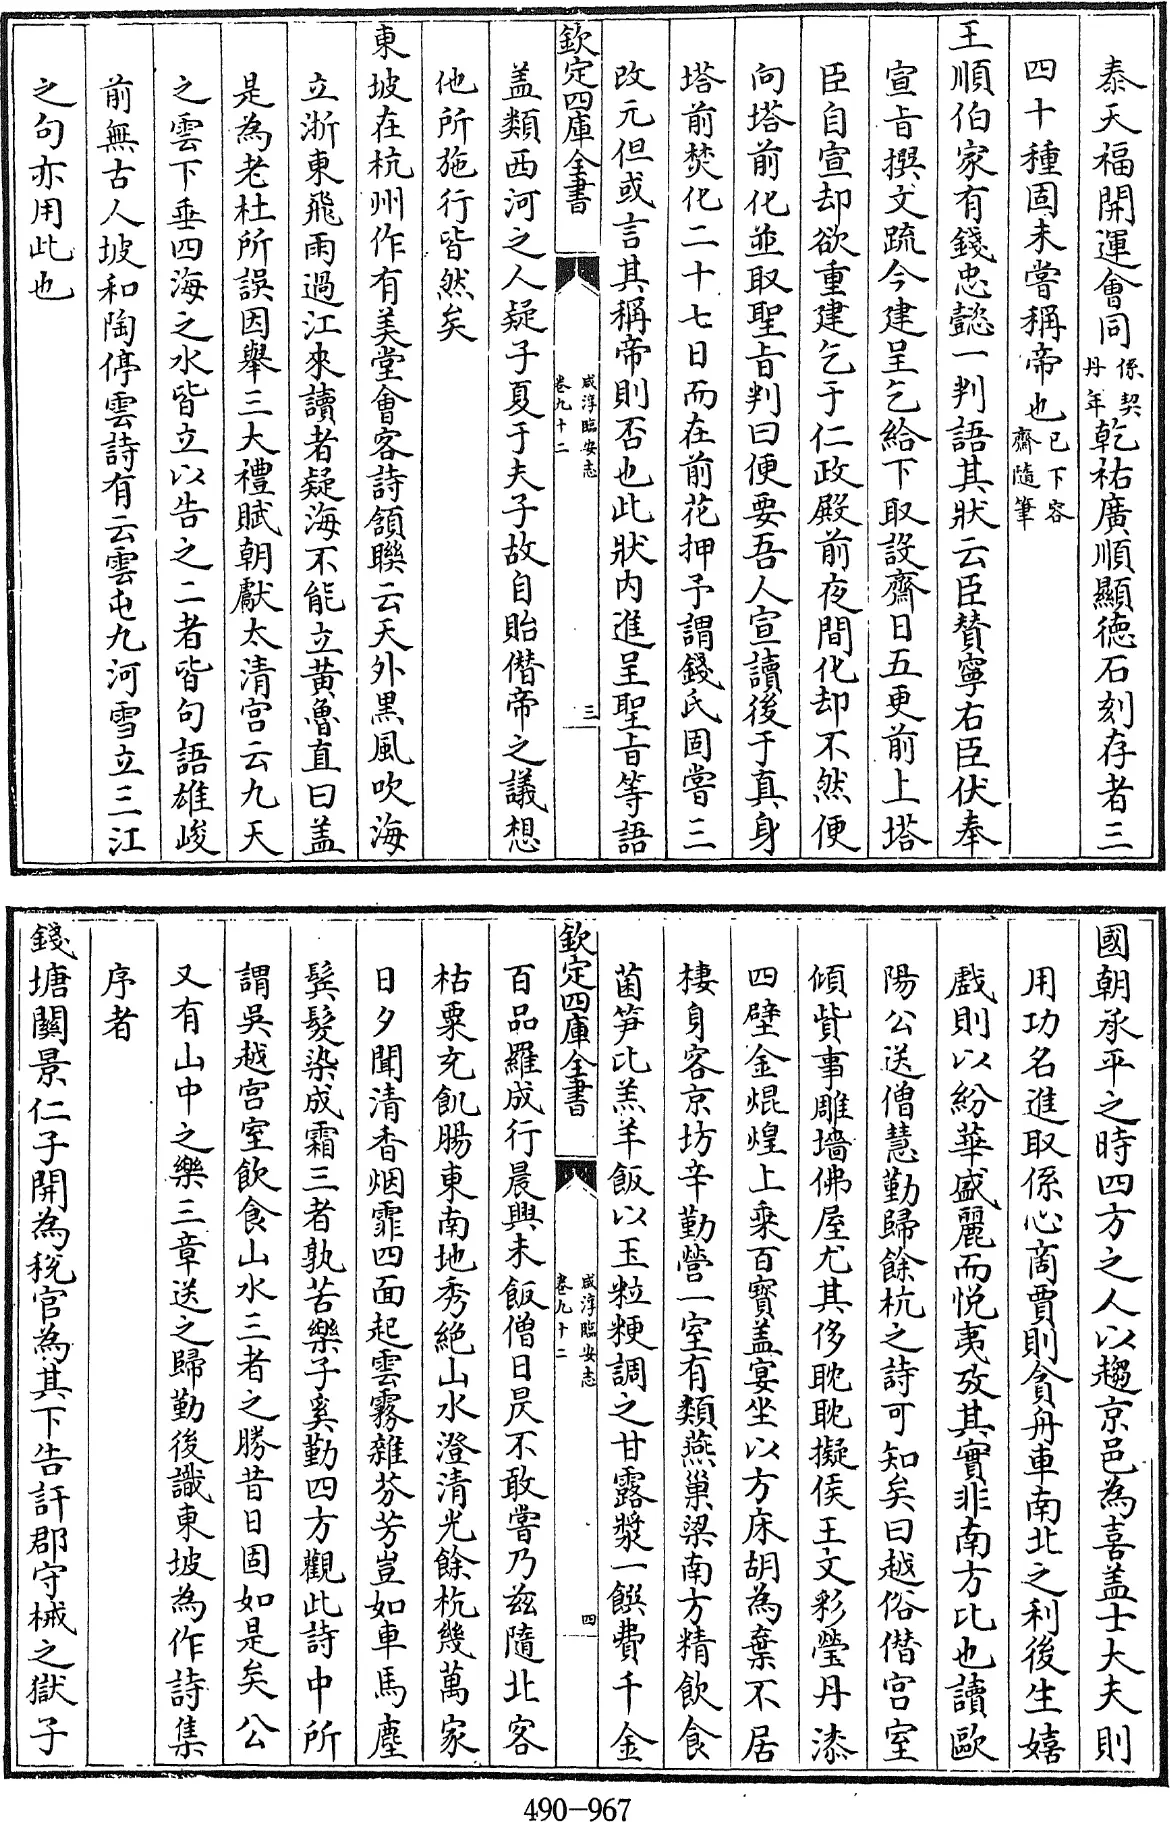 泰天福開運會同係契丹年乾祐廣順顯德石刻存者三
四十種固未嘗稱帝也已下容齋隨筆
王順伯家有錢忠懿一判語其狀云臣贊寧右臣伏奉
宣旨撰文疏今建呈乞給下取設齋日五更前上塔
臣自宣却欲重建乞于仁政殿前夜間化却不然便
向塔前化並取聖旨判曰便要吾人宣讀後于真身
塔前焚化二十七日而在前花押予謂錢氏固嘗三
改元但或言其稱帝則否也此狀内進呈聖旨等語
欽定四庫全書
咸淳臨安志
卷九十二
三
盖類西河之人疑子夏于夫子故自貽僭帝之議想
他所施行皆然矣
東坡在杭州作有美堂會客詩頷聯云天外黑風吹海
立浙東飛雨過江來讀者疑海不能立黄魯直曰盖
是為老杜所誤因舉三大禮賦朝獻太清宫云九天
之雲下垂四海之水皆立以告之二者皆句語雄峻
前無古人坡和陶停雲詩有云雲屯九河雪立三江
之句亦用此也
國朝承平之時四方之人以趨京邑為喜盖士大夫則
用功名進取係心商賈則貪舟車南北之利後生嬉
戲則以紛華盛麗而悦夷攷其實非南方比也讀歐
陽公送僧慧勤歸餘杭之詩可知矣曰越俗僭宫室
傾貲事雕墻佛屋尤其侈耽耽擬侯王文彩瑩丹漆
四壁金焜煌上乗百寳盖宴坐以方床胡為棄不居
棲身客京坊辛勤營一室有類燕巢梁南方精飲食
菌笋比羔羊飯以玉粒粳調之甘露漿一饌費千金
欽定四庫全書
咸淳臨安志
卷九十二
四
百品羅成行晨興未飯僧日昃不敢嘗乃兹隨北客
枯粟充飢腸東南地秀絶山水澄清光餘杭幾萬家
日夕聞清香烟霏四面起雲霧雜芬芳豈如車馬塵
鬓髮染成霜三者孰苦樂子奚勤四方觀此詩中所
謂吳越宫室飲食山水三者之勝昔日固如是矣公
又有山中之樂三章送之歸勤後識東坡為作詩集
序者
錢塘闗景仁子開為税官為其下告訐郡守械之獄子
490-967